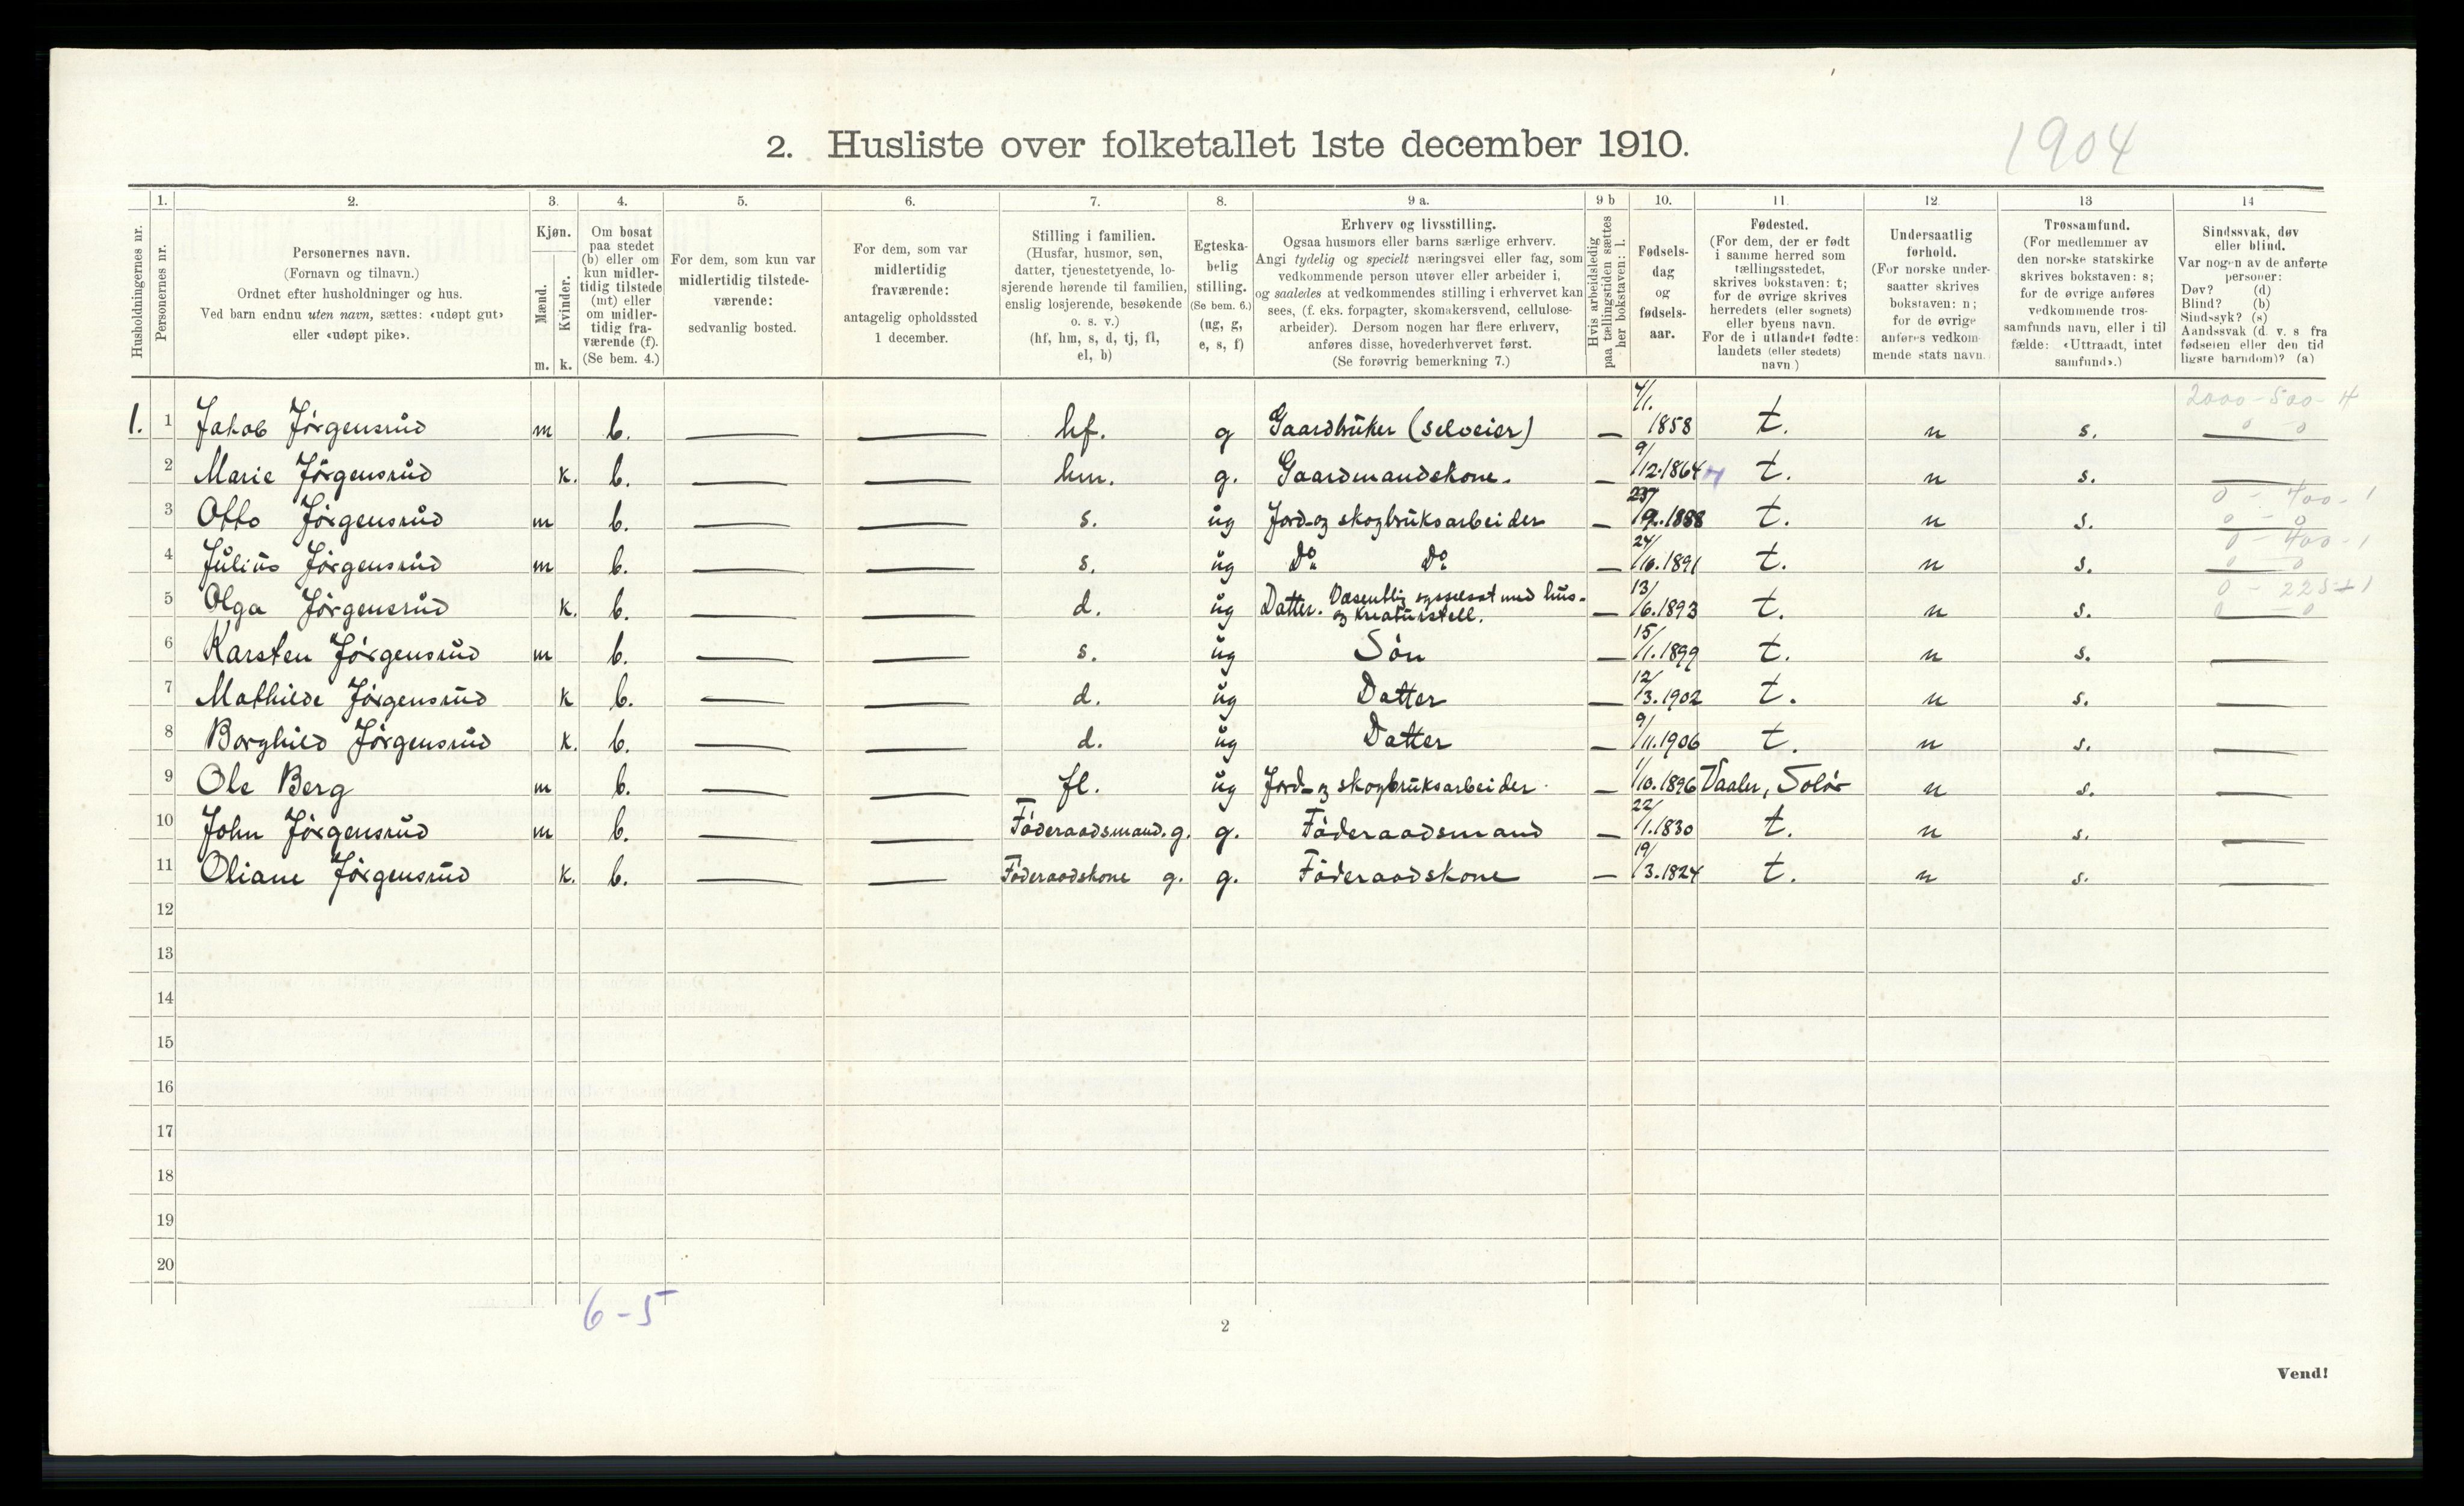 1904
2. Husliste over folketallet 1ste december 1910.
Husholdningernes nr.
1. Personernes nr.
2. Personernes navn.
(Fornavn og tilnavn.)
Ordnet efter husholdninger og hus.
Ved barn endnu uten navn, sættes: «udøpt gut»
eller «udøpt pike».
3. Kjøn.
Mænd. m.
Kvinder. k.
4. Om bosat
paa stedet
(b) eller om
kun midler-
tidig tilstede
(mt) eller
om midler-
tidig fra-
værende (f).
(Se bem. 4.)
5. For dem, som kun var
midlertidig tilstede-
værende:
sedvanlig bosted.
6. For dem, som var
midlertidig
fraværende:
antagelig opholdssted
1 december.
7. Stilling i familien.
(Husfar, husmor, søn,
datter, tjenestetyende, lo-
sjerende hørende til familien,
enslig losjerende, besøkende
o. s. v.)
(hf, hm, s, d, tj, fl,
el, b)
8. Egteska-
belig
stilling.
(Se bem. 6.)
(ug, g,
e, s, f)
9 a. Erhverv og livsstilling.
Ogsaa husmors eller barns særlige erhverv.
Angi tydelig og specielt næringsvei eller fag, som
vedkommende person utøver eller arbeider i,
og saaledes at vedkommendes stilling i erhvervet kan
sees, (f. eks. forpagter, skomakersvend, cellulose-
arbeider). Dersom nogen har flere erhverv,
anføres disse, hovederhvervet først.
(Se forøvrig bemerkning 7.)
9 b Hvis arbeidsledig
paa tællingstiden sættes
her bokstaven: l.
10. Fødsels-
dag
og
fødsels-
aar.
11. Fødested.
(For dem, der er født
i samme herred som
tællingsstedet,
skrives bokstaven: t;
for de øvrige skrives
herredets (eller sognets)
eller byens navn.
For de i utlandet fødte:
landets (eller stedets)
navn.)
12. Undersaatlig
forhold.
(For norske under-
saatter skrives
bokstaven: n;
for de øvrige
anføres vedkom-
mende stats navn.)
13 Trossamfund.
(For medlemmer av
den norske statskirke
skrives bokstaven: s;
for de øvrige anføres
vedkommende tros-
samfunds navn, eller i til
fælde: «Uttraadt, intet
samfund».)
14 Sindssvak, døv
eller blind.
Var nogen av de anførte
personer:
Døv? (d)
Blind? (b)
Sindssyk? (s)
Aandssvak (d. v. s fra
fødselen eller den tid
ligste barndom)? (a)
1. 1 Jakob Jörgensrud m b. — — hf. g Gaardbruker (selveier) — 4/11. 1858 t. n s. — 2000-500-4 0 0
2 Marie Jörgensrud k. b. — — hm. g. Gaardmandskone. — 9/12.1864 t. n s. —
3 Otto Jörgensrud m b. — — s. ug Jord- og skogbruksarbeider — 23/9.1888 t. n s. — 0-400-1 0-0
4 Julius Jörgensrud m b. — — s. ug Do Do — 24/10.1891 t. n s. — 0-400-1 0 0
5 Olga Jörgensrud k. b. — — d. ug Datter. Væsentlig sysselsat med hus-
og kreaturstell. — 13/6.1893 t. n s. 0-225-1 0-0
6 Karsten Jörgensrud m b. — — s. ug Sön — 15/1.1899 t. n s. —
7 Mathilde Jörgensrud k b. — — d. ug Datter — 12/3.1902 t. n s. —
8 Borghild Jörgensrud k. b. — — d. ug Datter — 9/11.1906 t. n s. —
9 Ole Berg m b. — — fl. ug Jord- og skogbruksarbeider — 1/10.1896 Vaaler, Solör n s. —
10 John Jörgensrud m b. — — Föderaadsmand. g. g. Föderaadsmand — 22/1.1830 t. n s. —
11 Oliane Jörgensrud k. b. — — Föderaadskone g. g. Föderaadskone — 19/3.1824 t. n s. —
12
13
14
15
16
17
18
19
20
6-5
2
Vend!